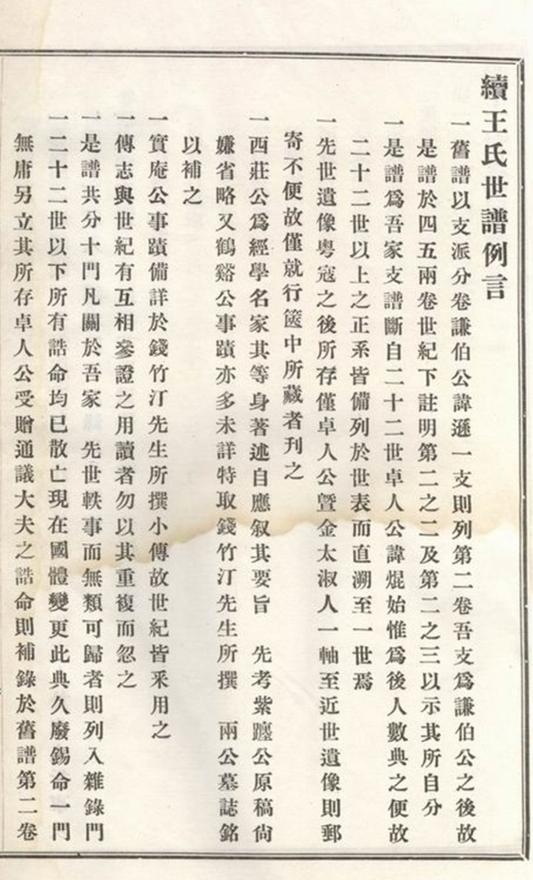 續王氏世譜例言
一舊譜以支派分卷謙伯公諱遜一支則列第二卷吾支爲謙伯公之後故
是譜於四五兩卷世紀下註明第二之二及第二之三以示其所自分
一是譜爲吾家支譜斷自二十二世卓人公諱焜始惟爲後人數典之便故
二十二世以上之正系皆備列於世表而直溯至一世焉
一先世遺像粤寇之後所存僅卓人公曁金太淑人一軸至近世遺像則郵
寄不便故僅就行篋中所藏者刊之
一西莊公爲經學名家其等身著述自應叙其要旨　先考紫躔公原稿尙
嫌省略又鶴谿公事蹟亦多未詳特取錢竹汀先生所撰　兩公墓誌銘
以補之
一實庵公事蹟備詳於錢竹汀先生所撰小傳故世紀皆采用之
一傳志與世紀有互相參證之用讀者勿以其重複而忽之
一是譜共分十門凡關於吾家　先世軼事而無類可歸者則列入雜錄門
一二十二世以下所有誥命均已散亡現在國體變更此典久廢錫命一門
無庸另立其所存卓人公受贈通議大夫之誥命則補錄於舊譜第二卷